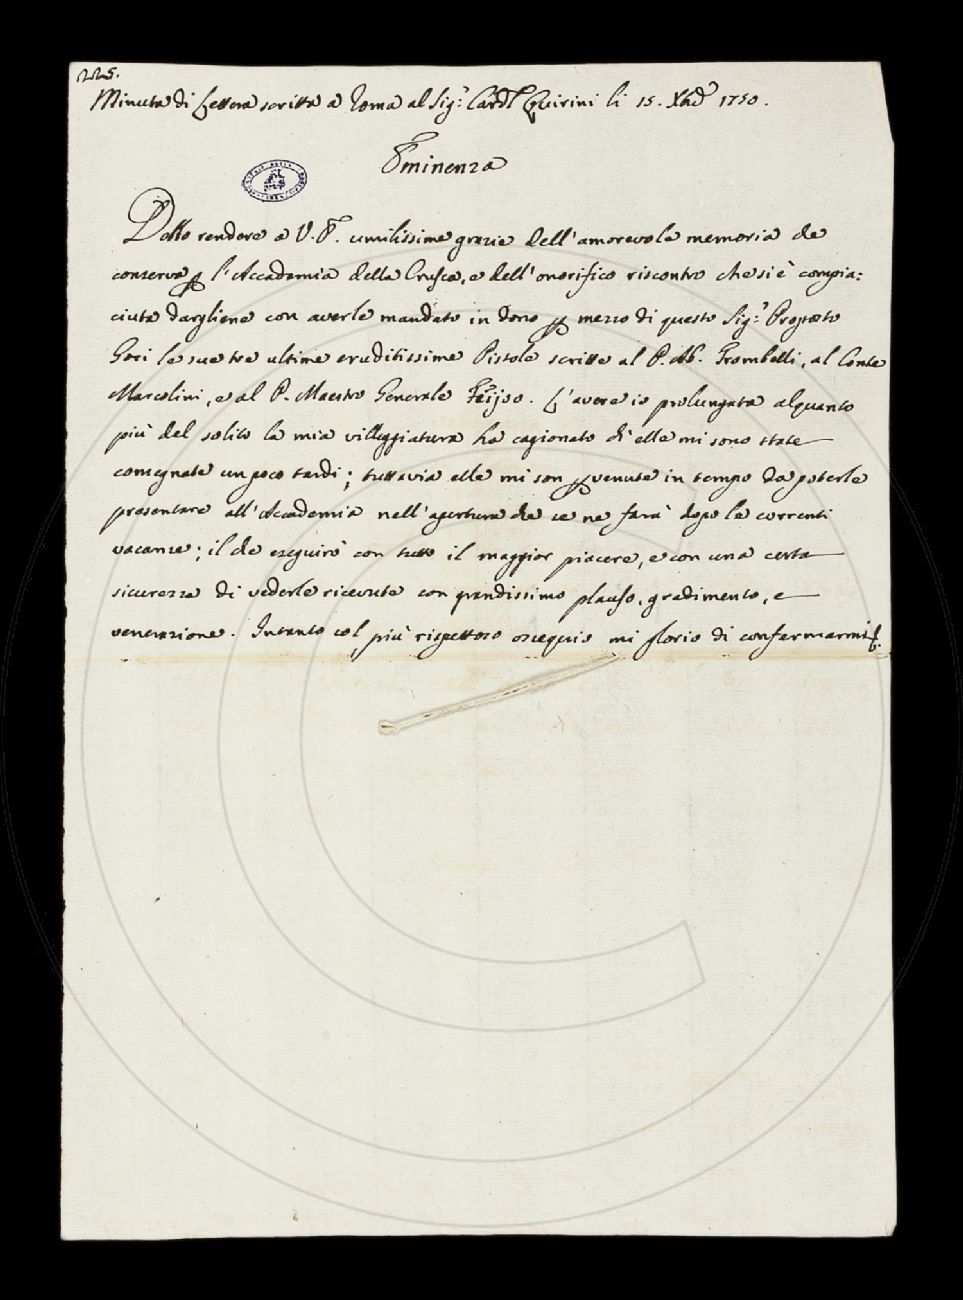 225.
Minuta di Lettera scritta a Roma al Sig.r Card.l Quirini li 15. Xbre 1750.
Eminenza
Debbo rendere a V. E. umilissime grazie dell'amorevole memoria che
conserva p l'Accademia della Crusca, e dell'onorifico riscontro che si è compia:
ciuta dargliene con averle mandato in dono p mezzo di questo Sig.r Proposto
Gori le sue tre ultime eruditissime Pistole scritte al P. Ab. Trombelli, al Conte
Marcolini, e al P. Maestro Generale Feijoo. L'avere io prolungata alquanto
più del solito la mia villeggiatura ha cagionato ch'elle mi sono state
consegnate un poco tardi; tuttavia elle mi son pvenute in tempo da poterle
presentare all'Accademia nell'apertura che se ne farà dopo le correnti
vacanze; il che eseguirò con tutto il maggior piacere, e con una certa
sicurezza di vederle ricevute con grandissimo plauso, gradimento, e
venerazione. Intanto col più rispettoso ossequio mi glorio di confermarmi